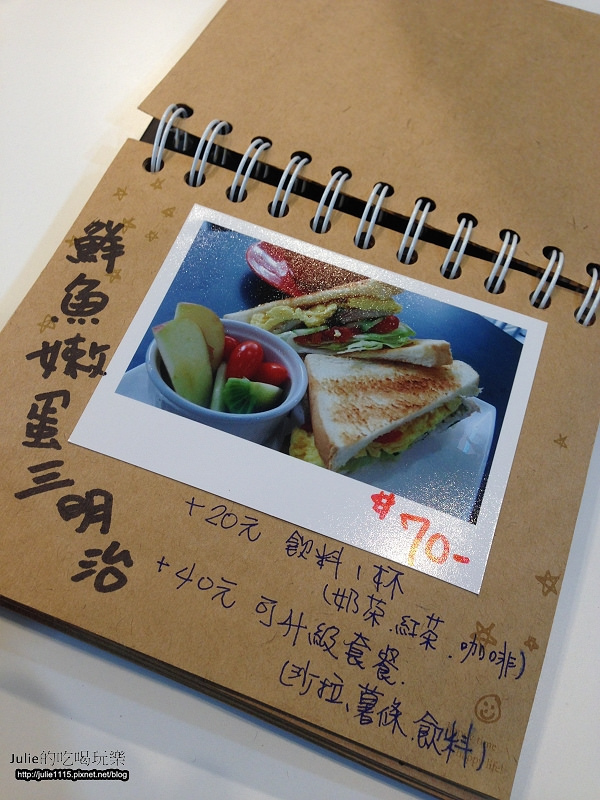 鮮魚嫩蛋三明治
#70-
+20元 飲料1杯
(奶茶.紅茶.咖啡)
+40元 可升級套餐.
(沙拉、薯條、飲料)
Julie的吃喝玩樂
http://julie1115.pixnet.net/blog